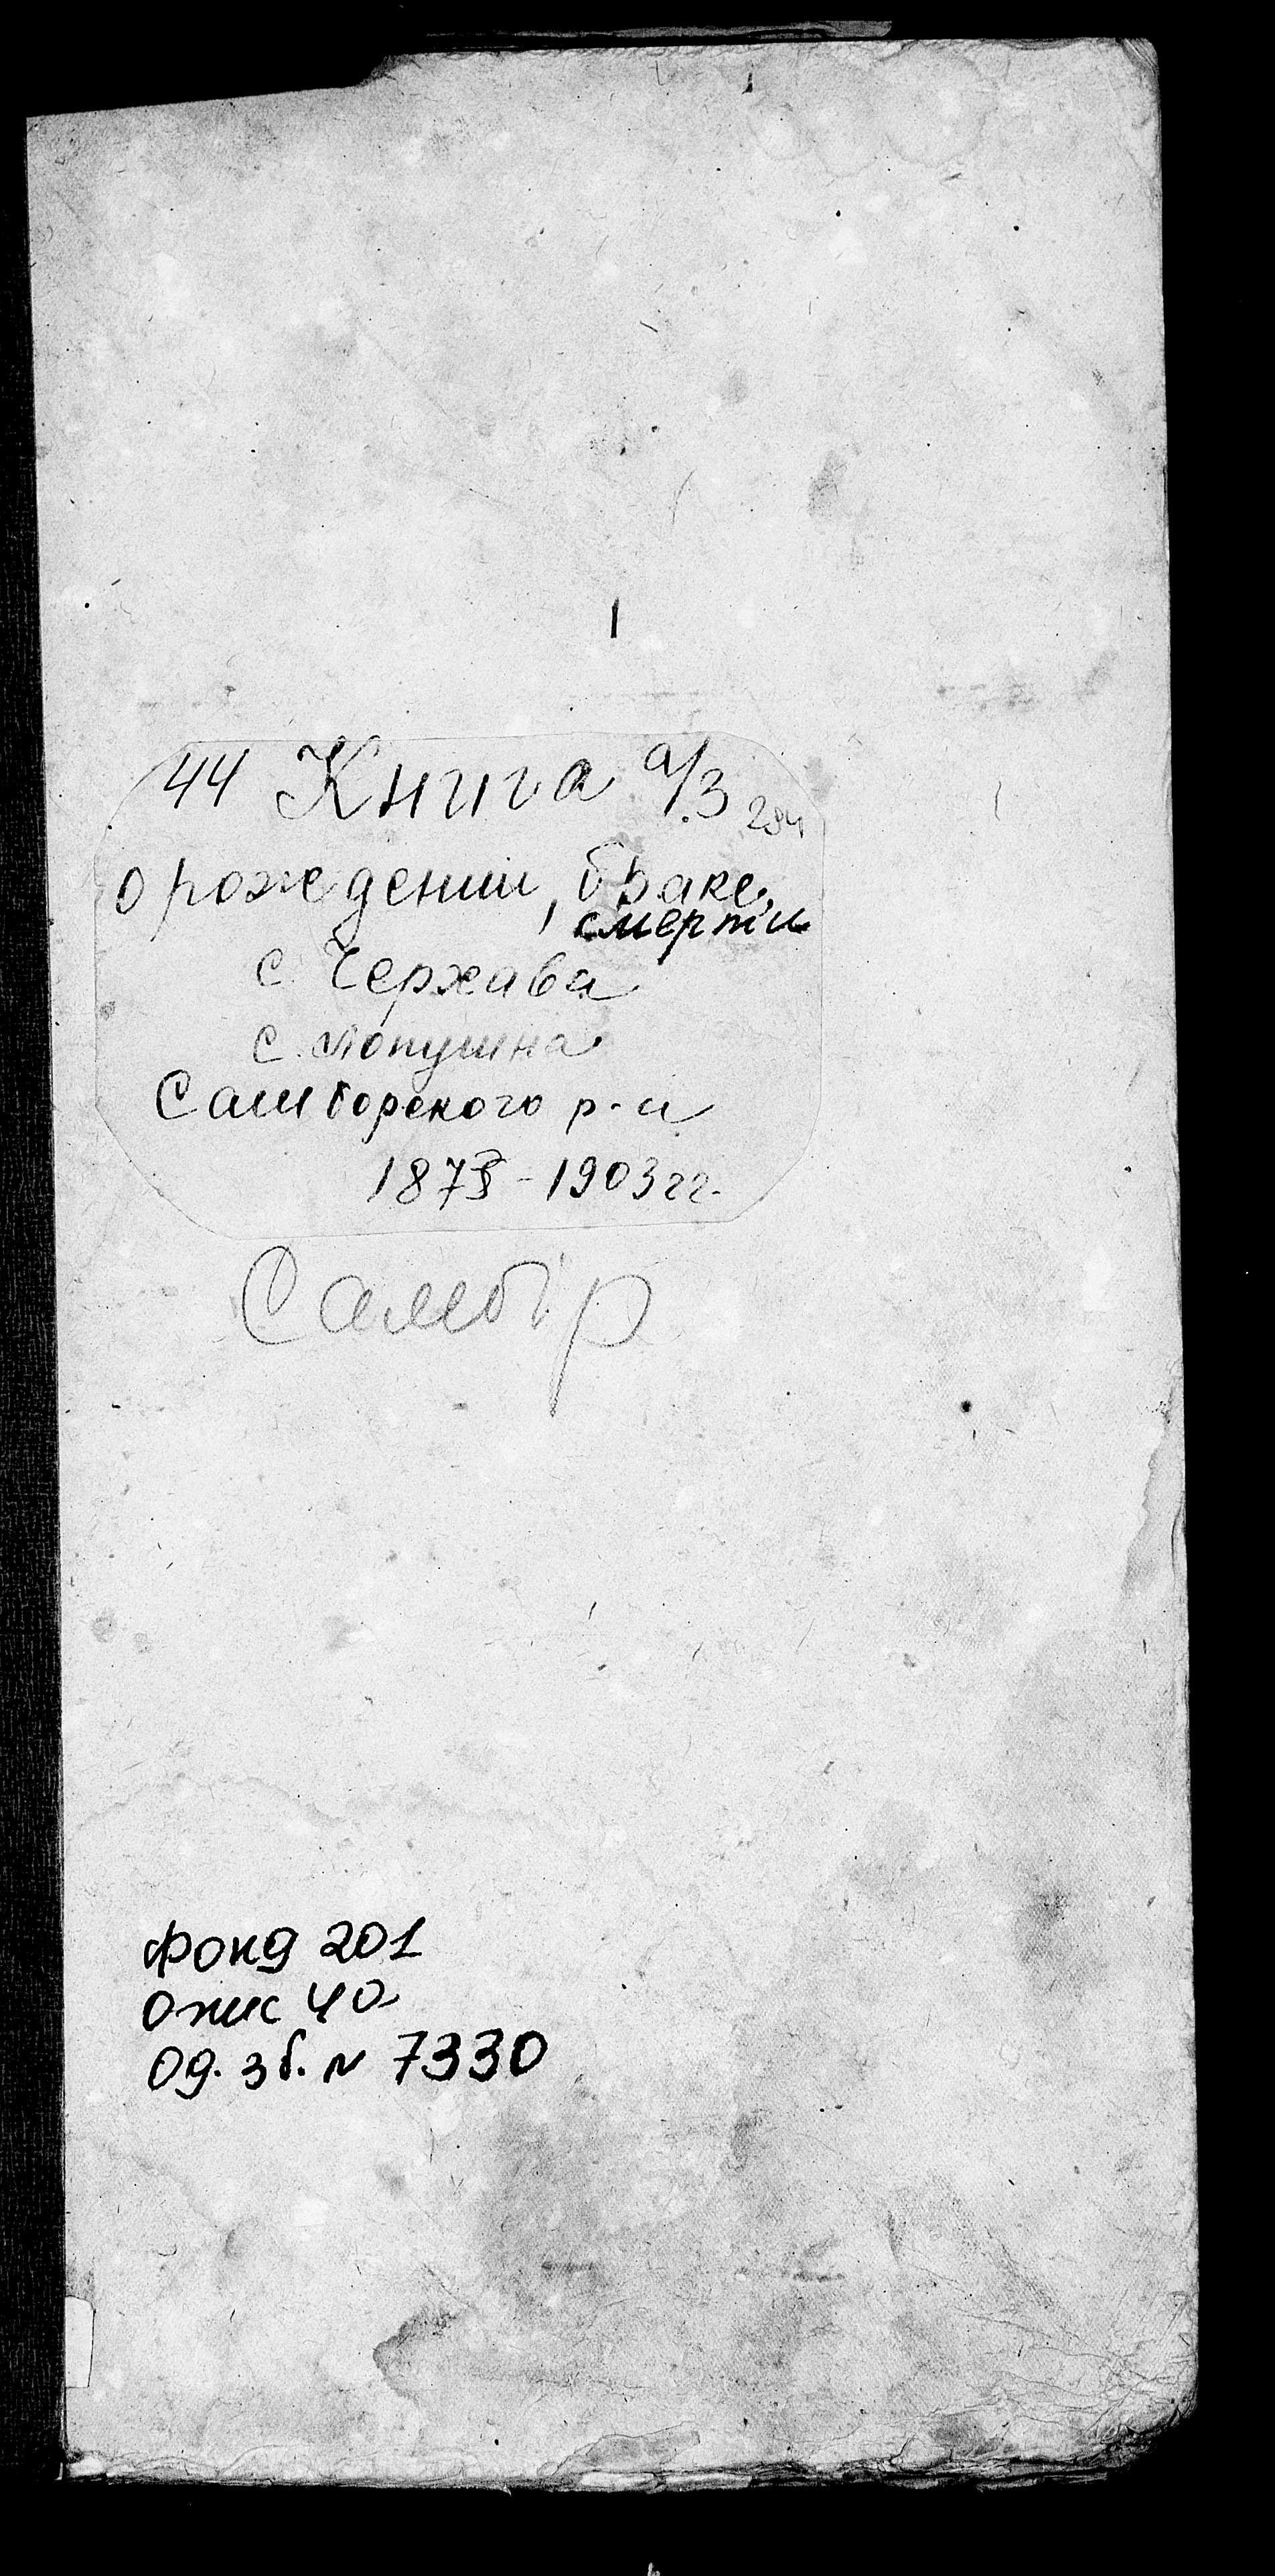 1
44 Книга а/з 284
о рождении, браке,
смерти
с. Черхава
с. Лопушна
Самборского р-а
1878 - 1903 гг.
Самбір
Фонд 201
Опис 4а
Од. зб. № 7330